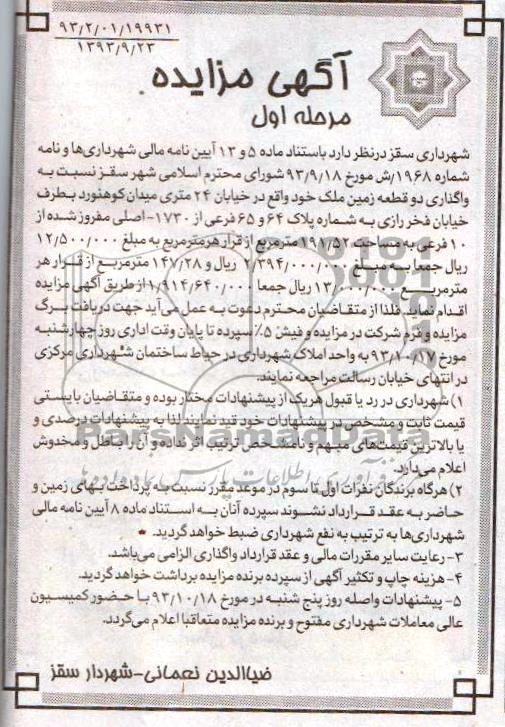 ۹۳/۲/۰۱/۱۹۹۳۱
۱۳۹۳/۹/۲۳
آگهی مزایده
مرحله اول
شهرداری سقز درنظر دارد باستناد ماده ۵ و ۱۳ آیین نامه مالی شهرداری‌ها و نامه
شماره ۱۹۶۸/ش مورخ ۹۳/۹/۱۸ شورای محترم اسلامی شهر سقز نسبت به
واگذاری دو قطعه زمین ملک خود واقع در خیابان ۲۴ متری میدان کوهنورد بطرف
خیابان فخر رازی به شماره پلاک ۶۴ و ۶۵ فرعی از ۱۷۳۰- اصلی مفروز شده از
۱۰ فرعی به مساحت ۱۹۱/۵۲ مترمربع از قرار هرمترمربع به مبلغ ۱۲/۵۰۰/۰۰۰
ریال جمعا به مبلغ ۲/۳۹۴/۰۰۰/۰۰۰ ریال و ۱۴۷/۲۸ مترمربع از قرار هر
مترمربع ۱۳/۰۰۰/۰۰۰ ریال جمعا ۱/۹۱۴/۶۴۰/۰۰۰ از طریق آگهی مزایده
اقدام نماید. فلذا از متقاضیان محترم دعوت به عمل می‌آید جهت دریافت برگ
مزایده و فرم شرکت در مزایده و فیش ۵٪ سپرده تا پایان وقت اداری روز چهارشنبه
مورخ ۹۳/۱۰/۱۷ به واحد املاک شهرداری در حیاط ساختمان شهرداری مرکزی
در انتهای خیابان رسالت مراجعه نمایند.
۱) شهرداری در رد یا قبول هریک از پیشنهادات مختار بوده و متقاضیان بایستی
قیمت ثابت و مشخص در پیشنهادات خود قید نمایند لذا به پیشنهادات درصدی و
یا بالاترین قیمت‌های مبهم و نامشخص ترتیب اثر نداده و آن را باطل و مخدوش
اعلام می‌دارد.
۲) هرگاه برندگان نفرات اول تا سوم در موعد مقرر نسبت به پرداخت بهای زمین و
حاضر به عقد قرارداد نشوند سپرده آنان به استناد ماده ۸ آیین نامه مالی
شهرداری‌ها به ترتیب به نفع شهرداری ضبط خواهد گردید.
۳- رعایت سایر مقررات مالی و عقد قرارداد واگذاری الزامی می‌باشد.
۴- هزینه چاپ و تکثیر آگهی از سپرده برنده مزایده برداشت خواهد گردید.
۵- پیشنهادات واصله روز پنج شنبه در مورخ ۹۳/۱۰/۱۸ با حضور کمیسیون
عالی معاملات شهرداری مفتوح و برنده مزایده متعاقبا اعلام می‌گردد.
ضیاالدین نعمانی-شهردار سقز
ParsNamadData